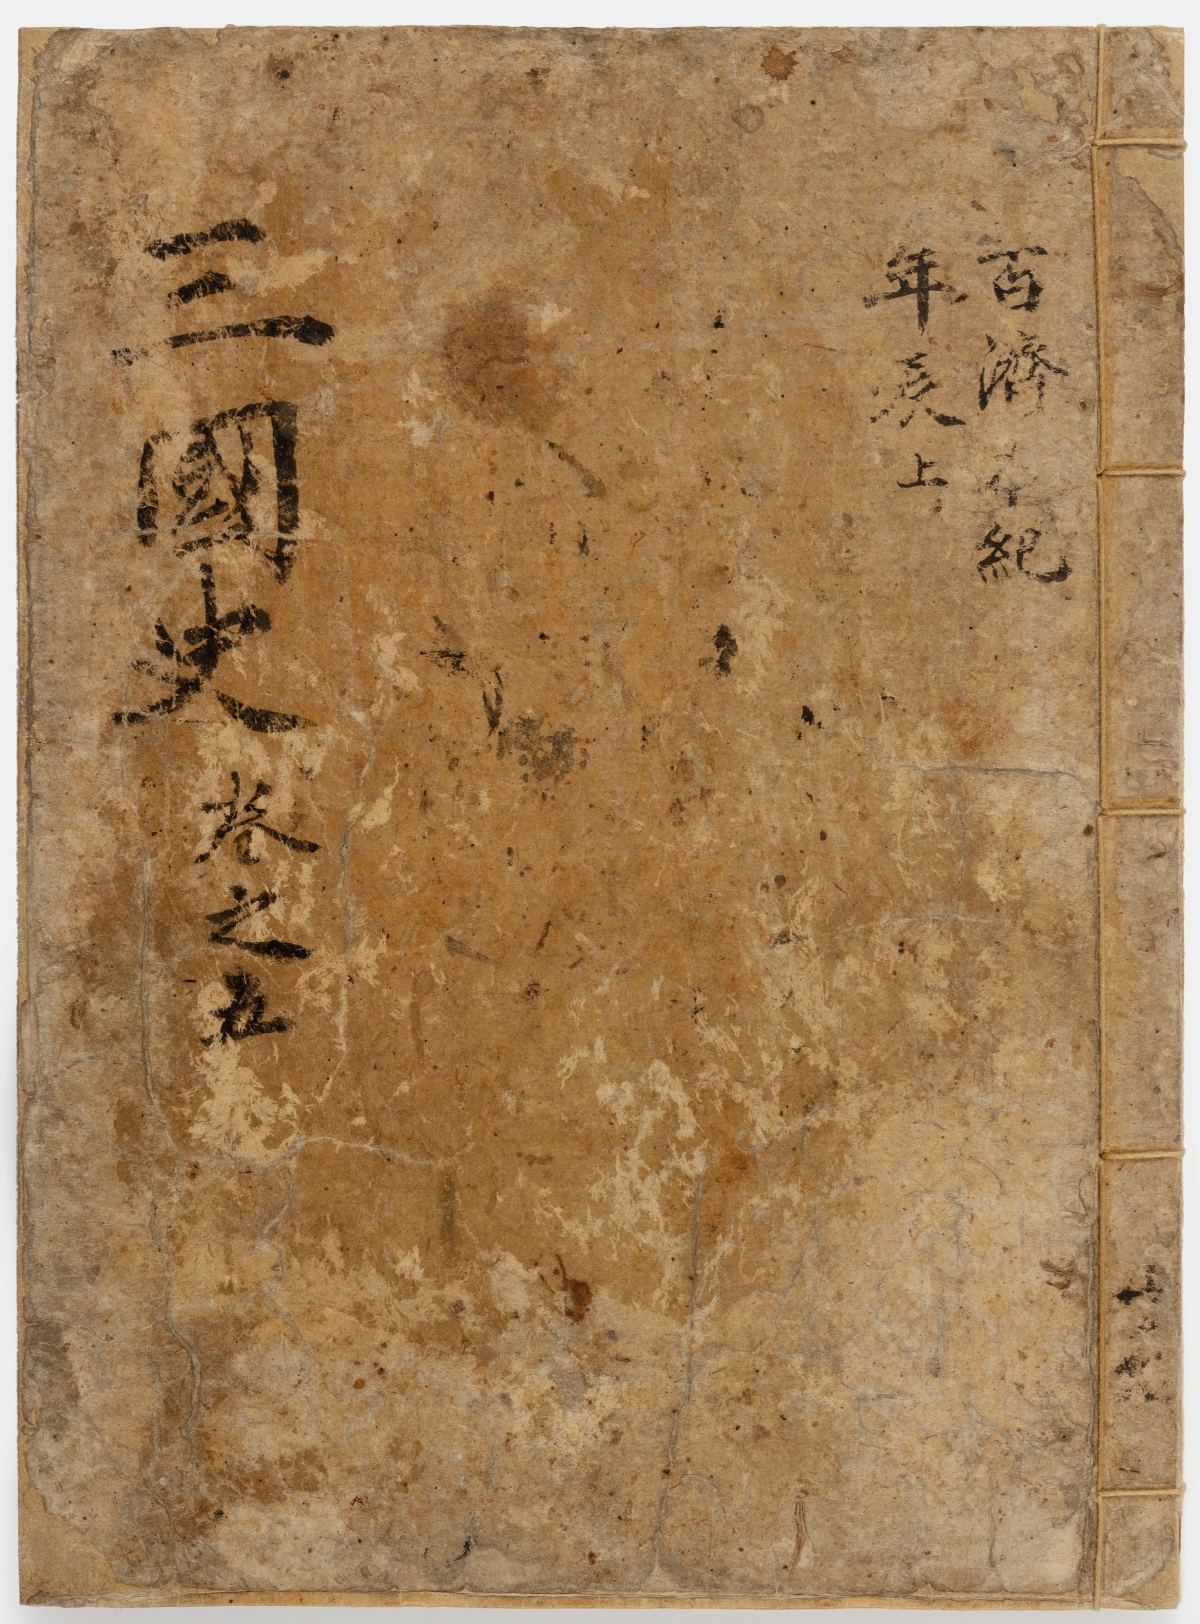 百濟本紀
年表上
三國史卷之五